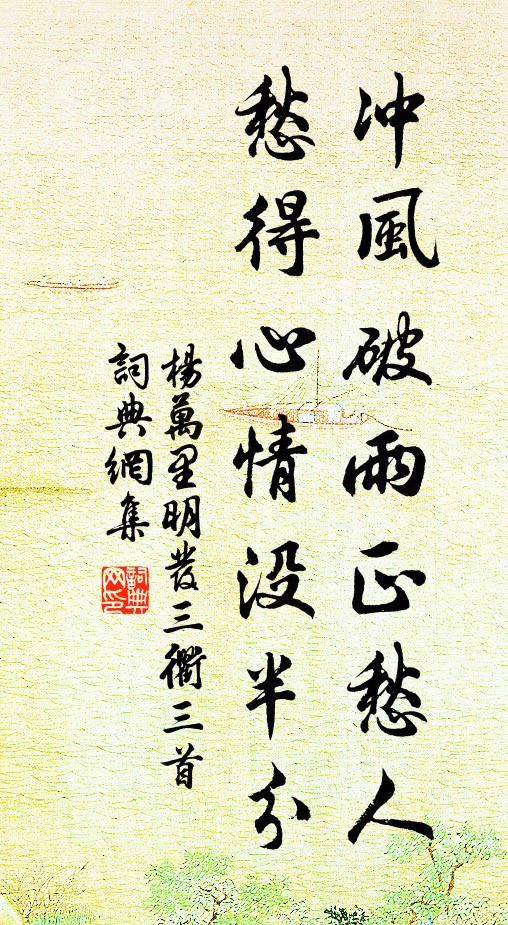 冲風破雨正愁人
愁得心情没半分
楊萬里明發三衢三首
詞典網集
詞典網印